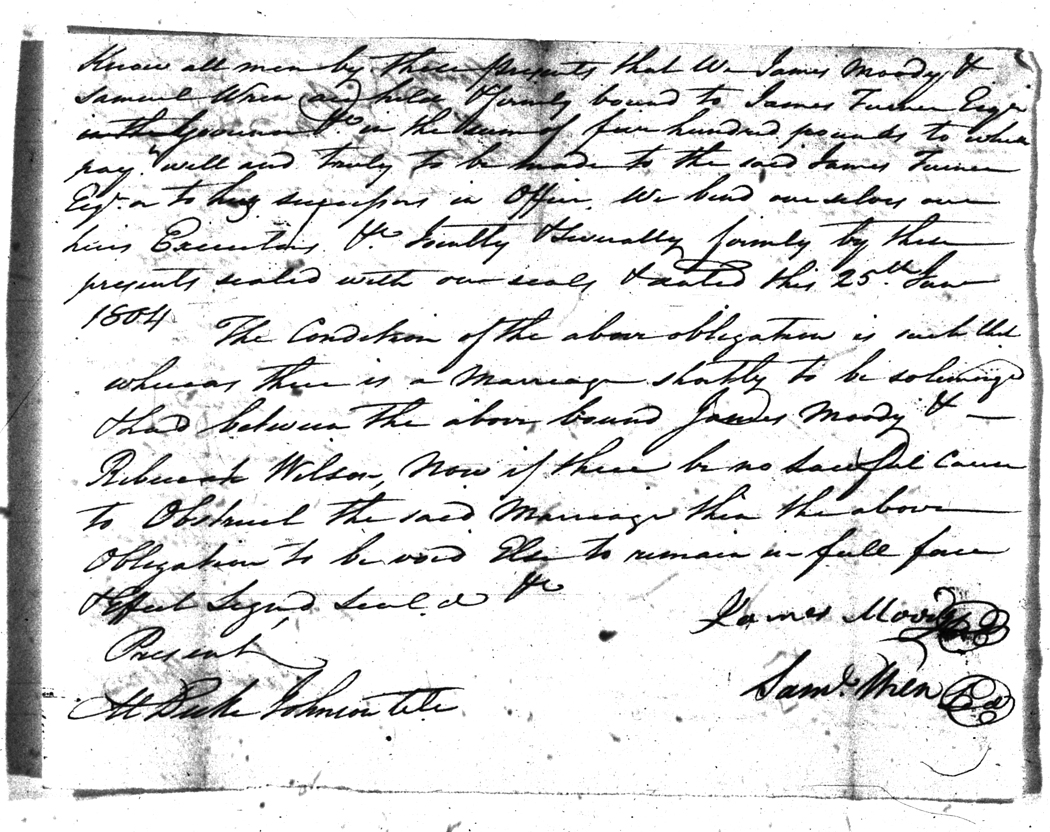 Know all men by these presents that We James Moody &
Samuel Wren are held & firmly bound to James Turner Esqr
Governor &c in the sum of five hundred pounds to which
paym't well and truly to be made to the said James Turner
Esqr or to his successors in Office, We bind ourselves our
heirs Executors &c Jointly & Severally firmly by these
presents sealed with our seals & dated this 25th Jan
1804
The Condition of the above obligation is such that
whereas there is a Marriage shortly to be solemnizd
& had between the above bound James Moody & —
Rebecah Wilson, Now if there be no Lawful Cause
to Obstruct the said Marriage then the above
Obligation to be void Else to remain in full force
& Effect Signd, Seal.d &c
Present
James Moody
Saml. Wren
M Duke Johnson